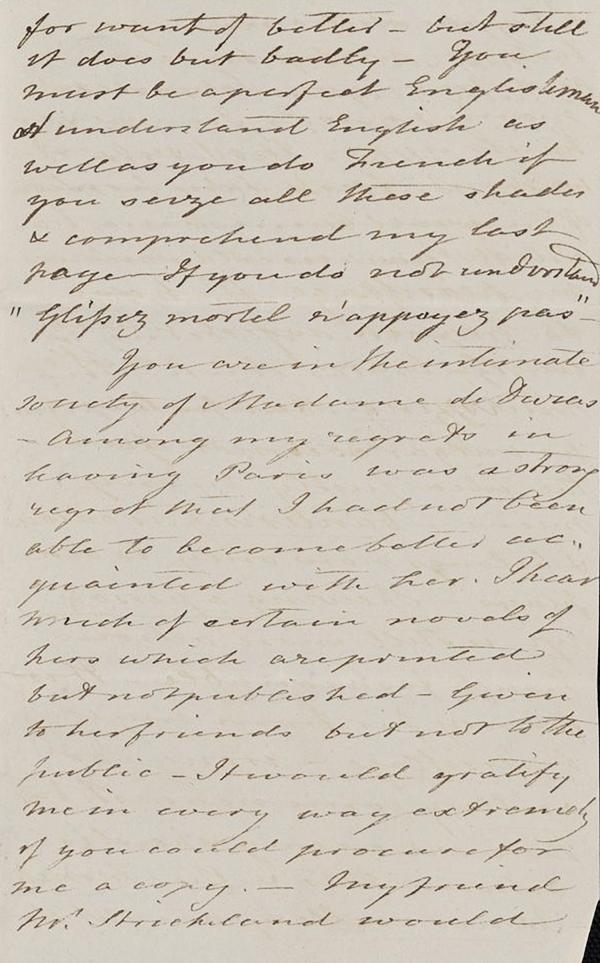 for want of better – but still
it does but badly – You
must be a perfect Englishman
& understand English as
well as you do French if
you seize all these shades
& comprehend my last
page – If you do not understand
"Glissez mortel n'appuyez pas" –
You are in the intimate
society of Madame de Duras
– Among my regrets in
leaving Paris was a strong
regret that I had not been
able to become better ac-
quainted with her. I hear
much of certain novels of
hers which are printed
but not published – Given
to her friends but not to the
public – It would gratify
me in every way extremely
if you could procure for
me a copy. — My friend
Mr. Strickland would